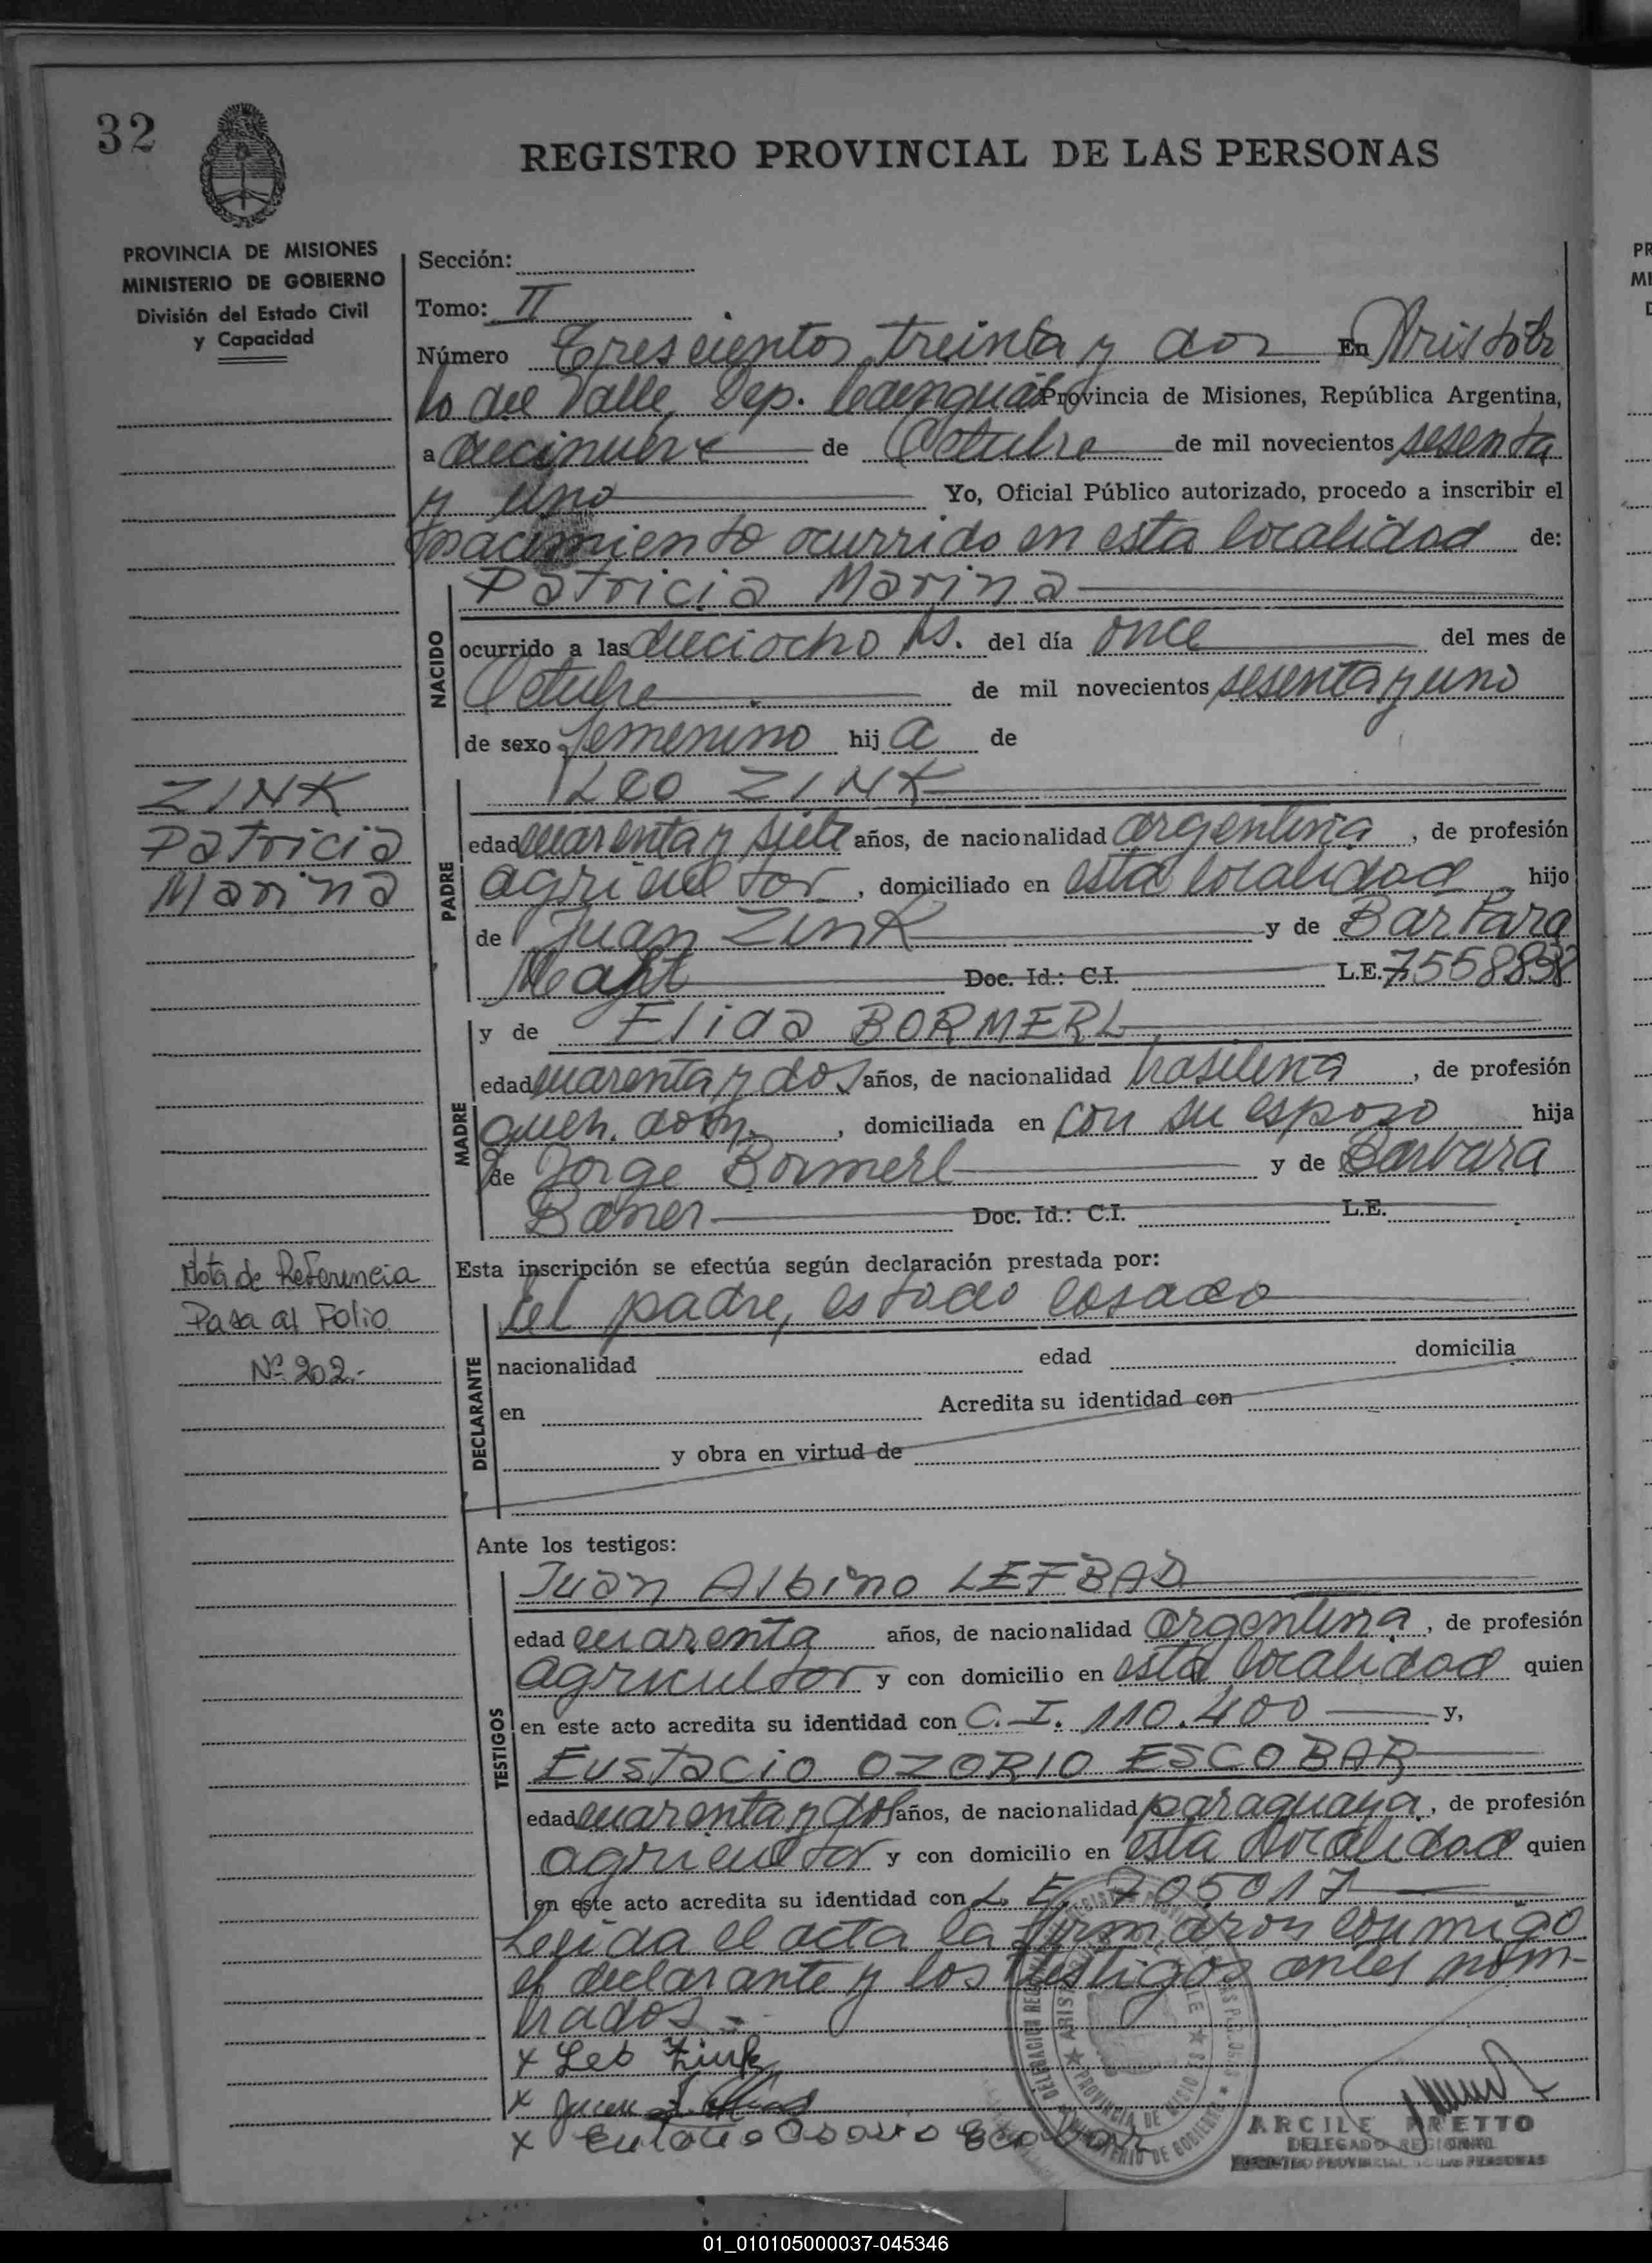 32
REGISTRO PROVINCIAL DE LAS PERSONAS
PROVINCIA DE MISIONES
MINISTERIO DE GOBIERNO
División del Estado Civil
y Capacidad
Sección:
Tomo: II
Número Trescientos treinta y dos En Aristóbu
lo del Valle, Dep. Cainguás Provincia de Misiones, República Argentina,
a diecinueve de Octubre de mil novecientos sesenta
y uno Yo, Oficial Público autorizado, procedo a inscribir el
nacimiento ocurrido en esta localidad de:
NACIDO
Patricia Marina
ocurrido a las dieciocho hs. del día once del mes de
Octubre de mil novecientos sesenta y uno
de sexo femenino hija de
ZINK
Patricia
Marina
PADRE
LEO ZINK
edad cuarenta y siete años, de nacionalidad argentina, de profesión
agricultor, domiciliado en esta localidad hijo
de Juan Zink y de Barbara
Doc. Id.: C.I. L.E. 7558838
MADRE
y de Elida BORMERL
edad cuarenta y dos años, de nacionalidad brasilena, de profesión
queh. dom., domiciliada en con su esposo hija
de Jorge Bormerl y de Barbara
Baner Doc. Id.: C.I. L.E.
Nota de Referencia
Pasa al Folio
Nº 202.-
Esta inscripción se efectúa según declaración prestada por:
DECLARANTE
el padre, estado casado
nacionalidad edad domicilia
en Acredita su identidad con
y obra en virtud de
Ante los testigos:
TESTIGOS
Juan Albino LEFBAD
edad cuarenta años, de nacionalidad argentina, de profesión
agricultor y con domicilio en esta localidad quien
en este acto acredita su identidad con C.I. 110.400 y,
Eustacio OZORIO ESCOBAR
edad cuarenta y dos años, de nacionalidad paraguaya, de profesión
agricultor y con domicilio en esta localidad quien
en este acto acredita su identidad con L.E. 705017
Leida el acta la firmaron conmigo
el declarante y los testigos antes nom-
brados.-
x Leo Zink
x Juan
x Eustacio Osorio Escobar
PROVINCIA DE MISIONES
MINISTERIO DE GOBIERNO
ARCILE PRETTO
DELEGADO REGIONAL
REGISTRO PROVINCIAL DE LAS PERSONAS
01_010105000037-045346